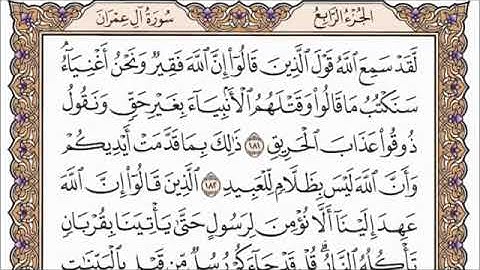 سُورَةُ آلِ عِمْرَان
الجُزْءُ الرَّابِعُ
لَّقَدْ سَمِعَ ٱللَّهُ قَوْلَ ٱلَّذِينَ قَالُوٓا۟ إِنَّ ٱللَّهَ فَقِيرٌ وَنَحْنُ أَغْنِيَآءُ ۘ
سَنَكْتُبُ مَا قَالُوا۟ وَقَتْلَهُمُ ٱلْأَنۢبِيَآءَ بِغَيْرِ حَقٍّ وَنَقُولُ
ذُوقُوا۟ عَذَابَ ٱلْحَرِيقِ ١٨١ ذَٰلِكَ بِمَا قَدَّمَتْ أَيْدِيكُمْ
وَأَنَّ ٱللَّهَ لَيْسَ بِظَلَّامٍ لِّلْعَبِيدِ ١٨٢ ٱلَّذِينَ قَالُوٓا۟ إِنَّ ٱللَّهَ
عَهِدَ إِلَيْنَآ أَلَّا نُؤْمِنَ لِرَسُولٍ حَتَّىٰ يَأْتِيَنَا بِقُرْبَانٍ
تَأْكُلُهُ ٱلنَّارُ ۗ قُلْ قَدْ جَآءَكُمْ رُسُلٌ مِّن قَبْلِى بِٱلْبَيِّنَٰتِ